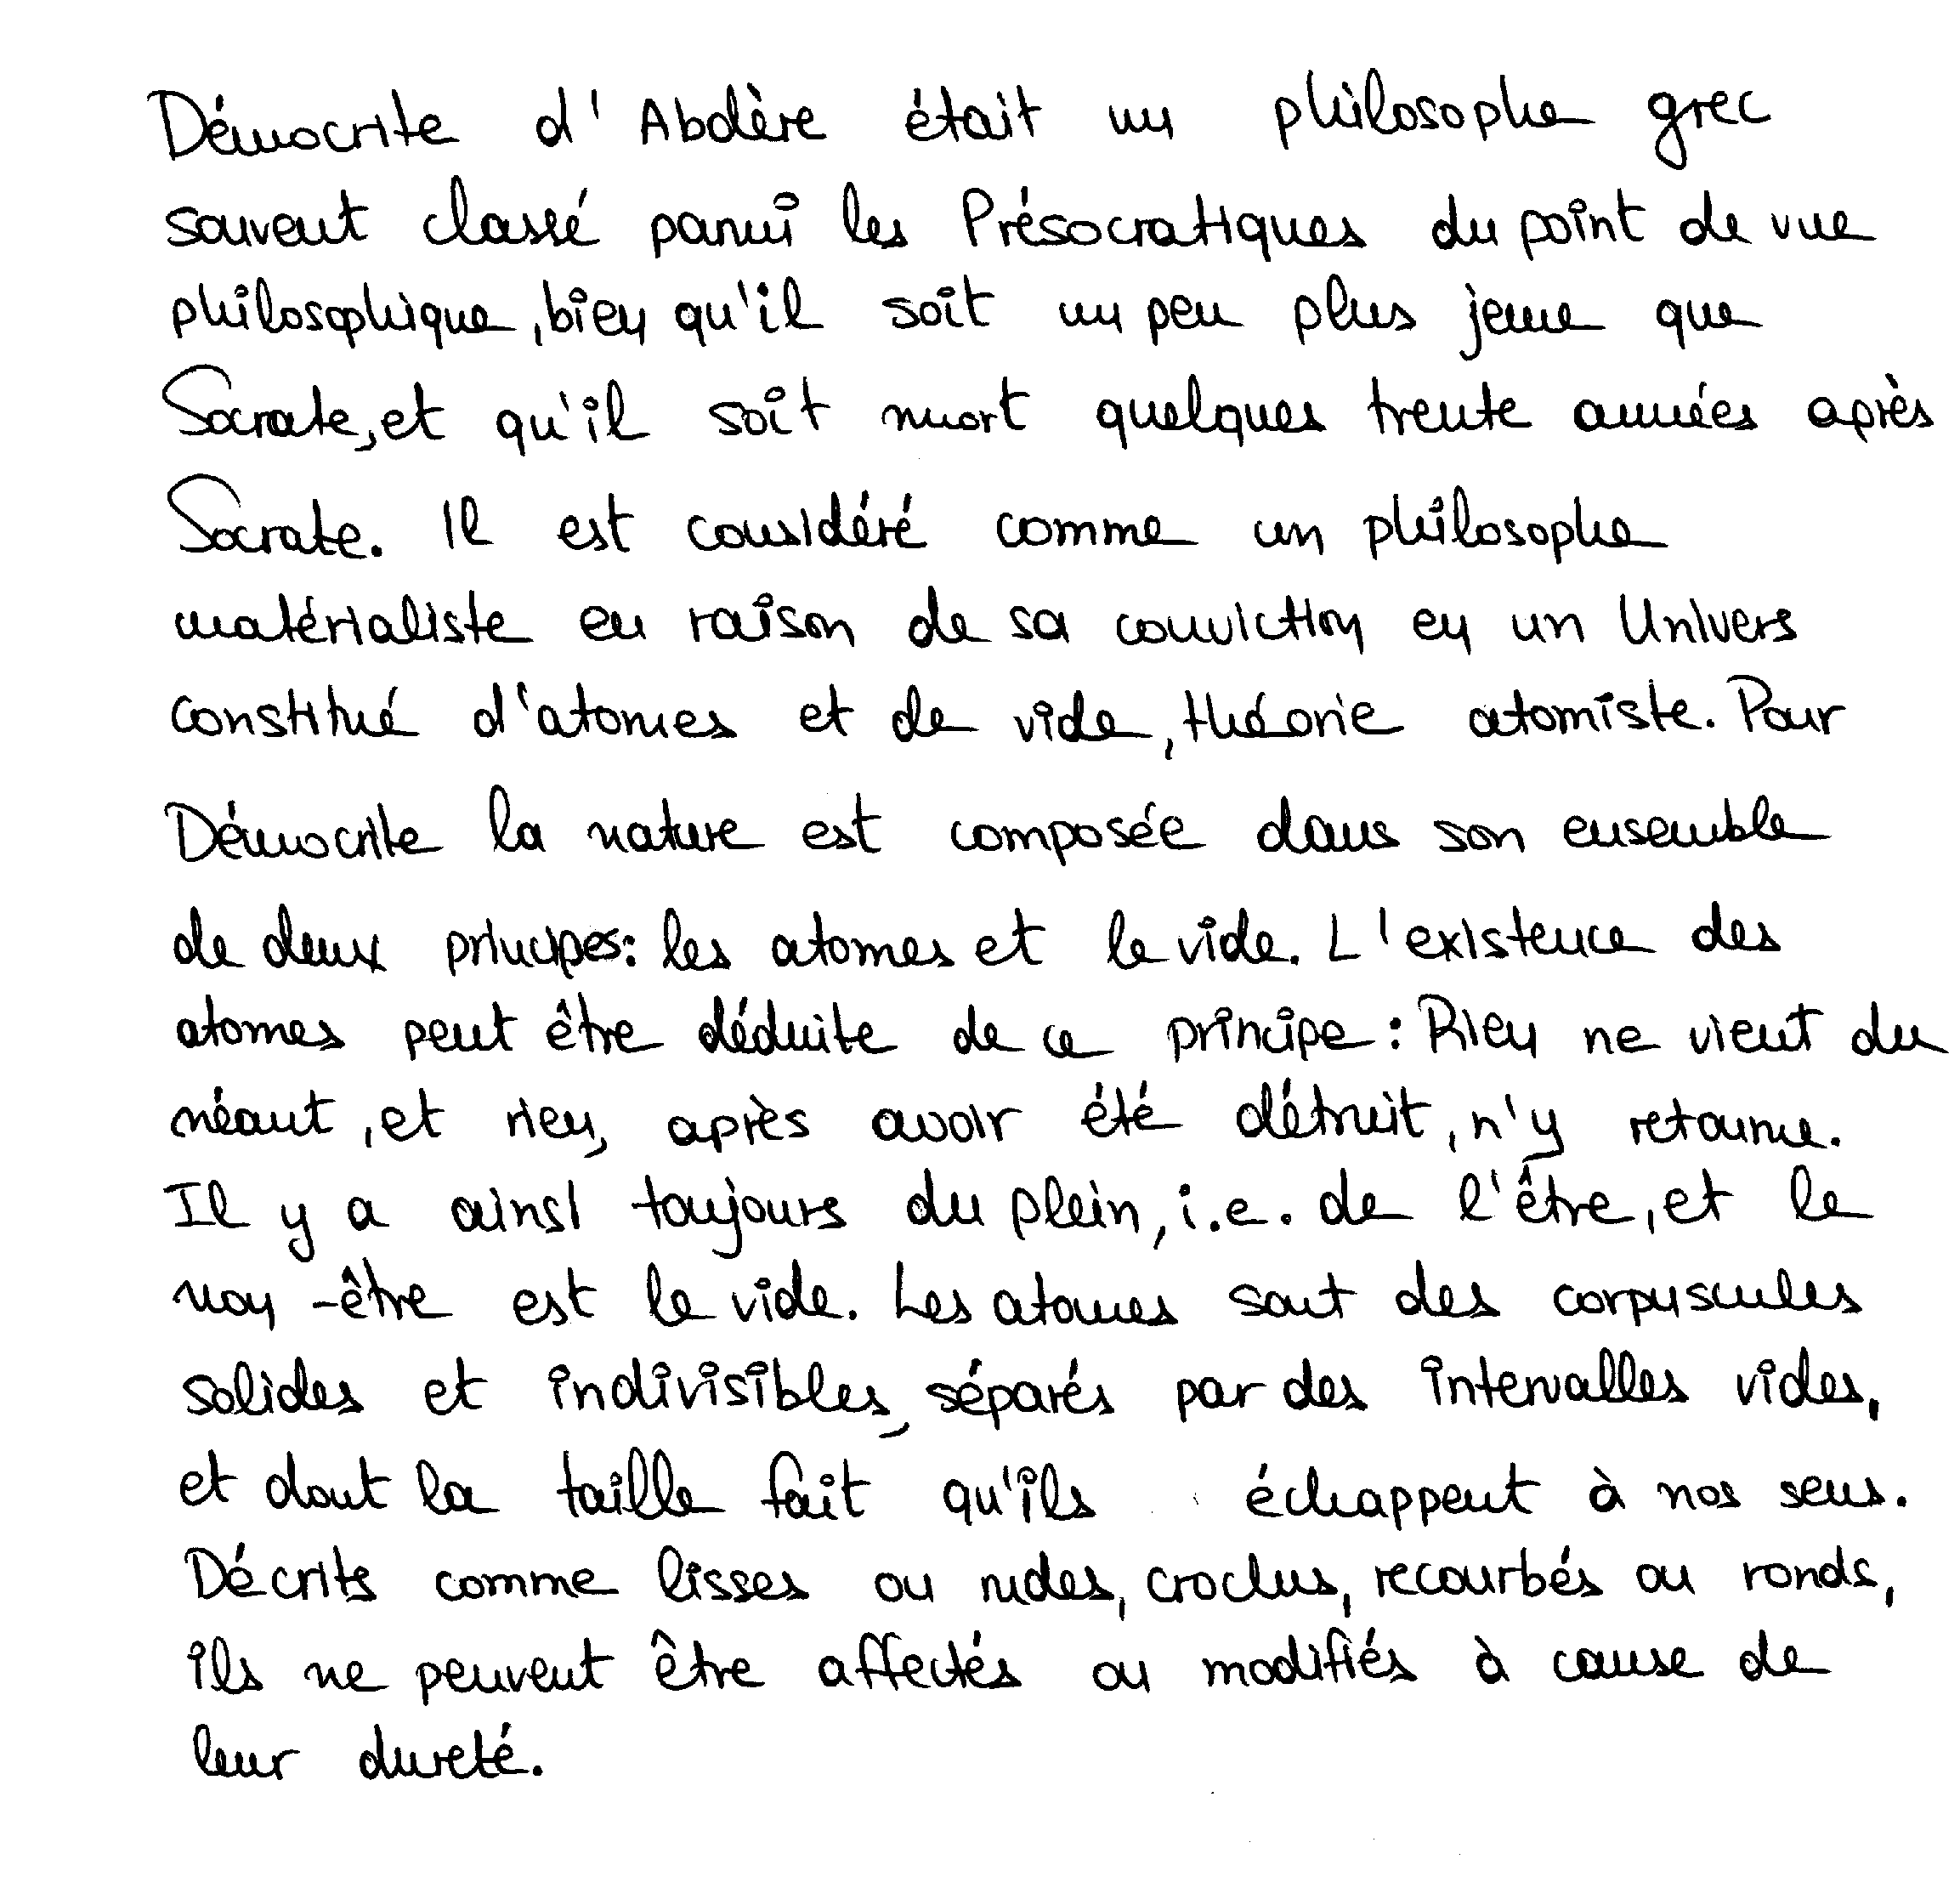 Démocrite d'Abdère était un philosophe grec
souvent classé parmi les Présocratiques du point de vue
philosophique, bien qu'il soit un peu plus jeune que
Socrate, et qu'il soit mort quelques trente années après
Socrate. Il est considéré comme un philosophe
matérialiste en raison de sa conviction en un Univers
constitué d'atomes et de vide, théorie atomiste. Pour
Démocrite la nature est composée dans son ensemble
de deux principes: les atomes et le vide. L'existence des
atomes peut être déduite de ce principe: Rien ne vient du
néant, et rien, après avoir été détruit, n'y retourne.
Il y a ainsi toujours du plein, i.e. de l'être, et le
non-être est le vide. Les atomes sont des corpuscules
solides et indivisibles, séparés par des intervalles vides,
et dont la taille fait qu'ils échappent à nos sens.
Décrits comme lisses ou rudes, crochus, recourbés ou ronds,
ils ne peuvent être affectés ou modifiés à cause de
leur dureté.